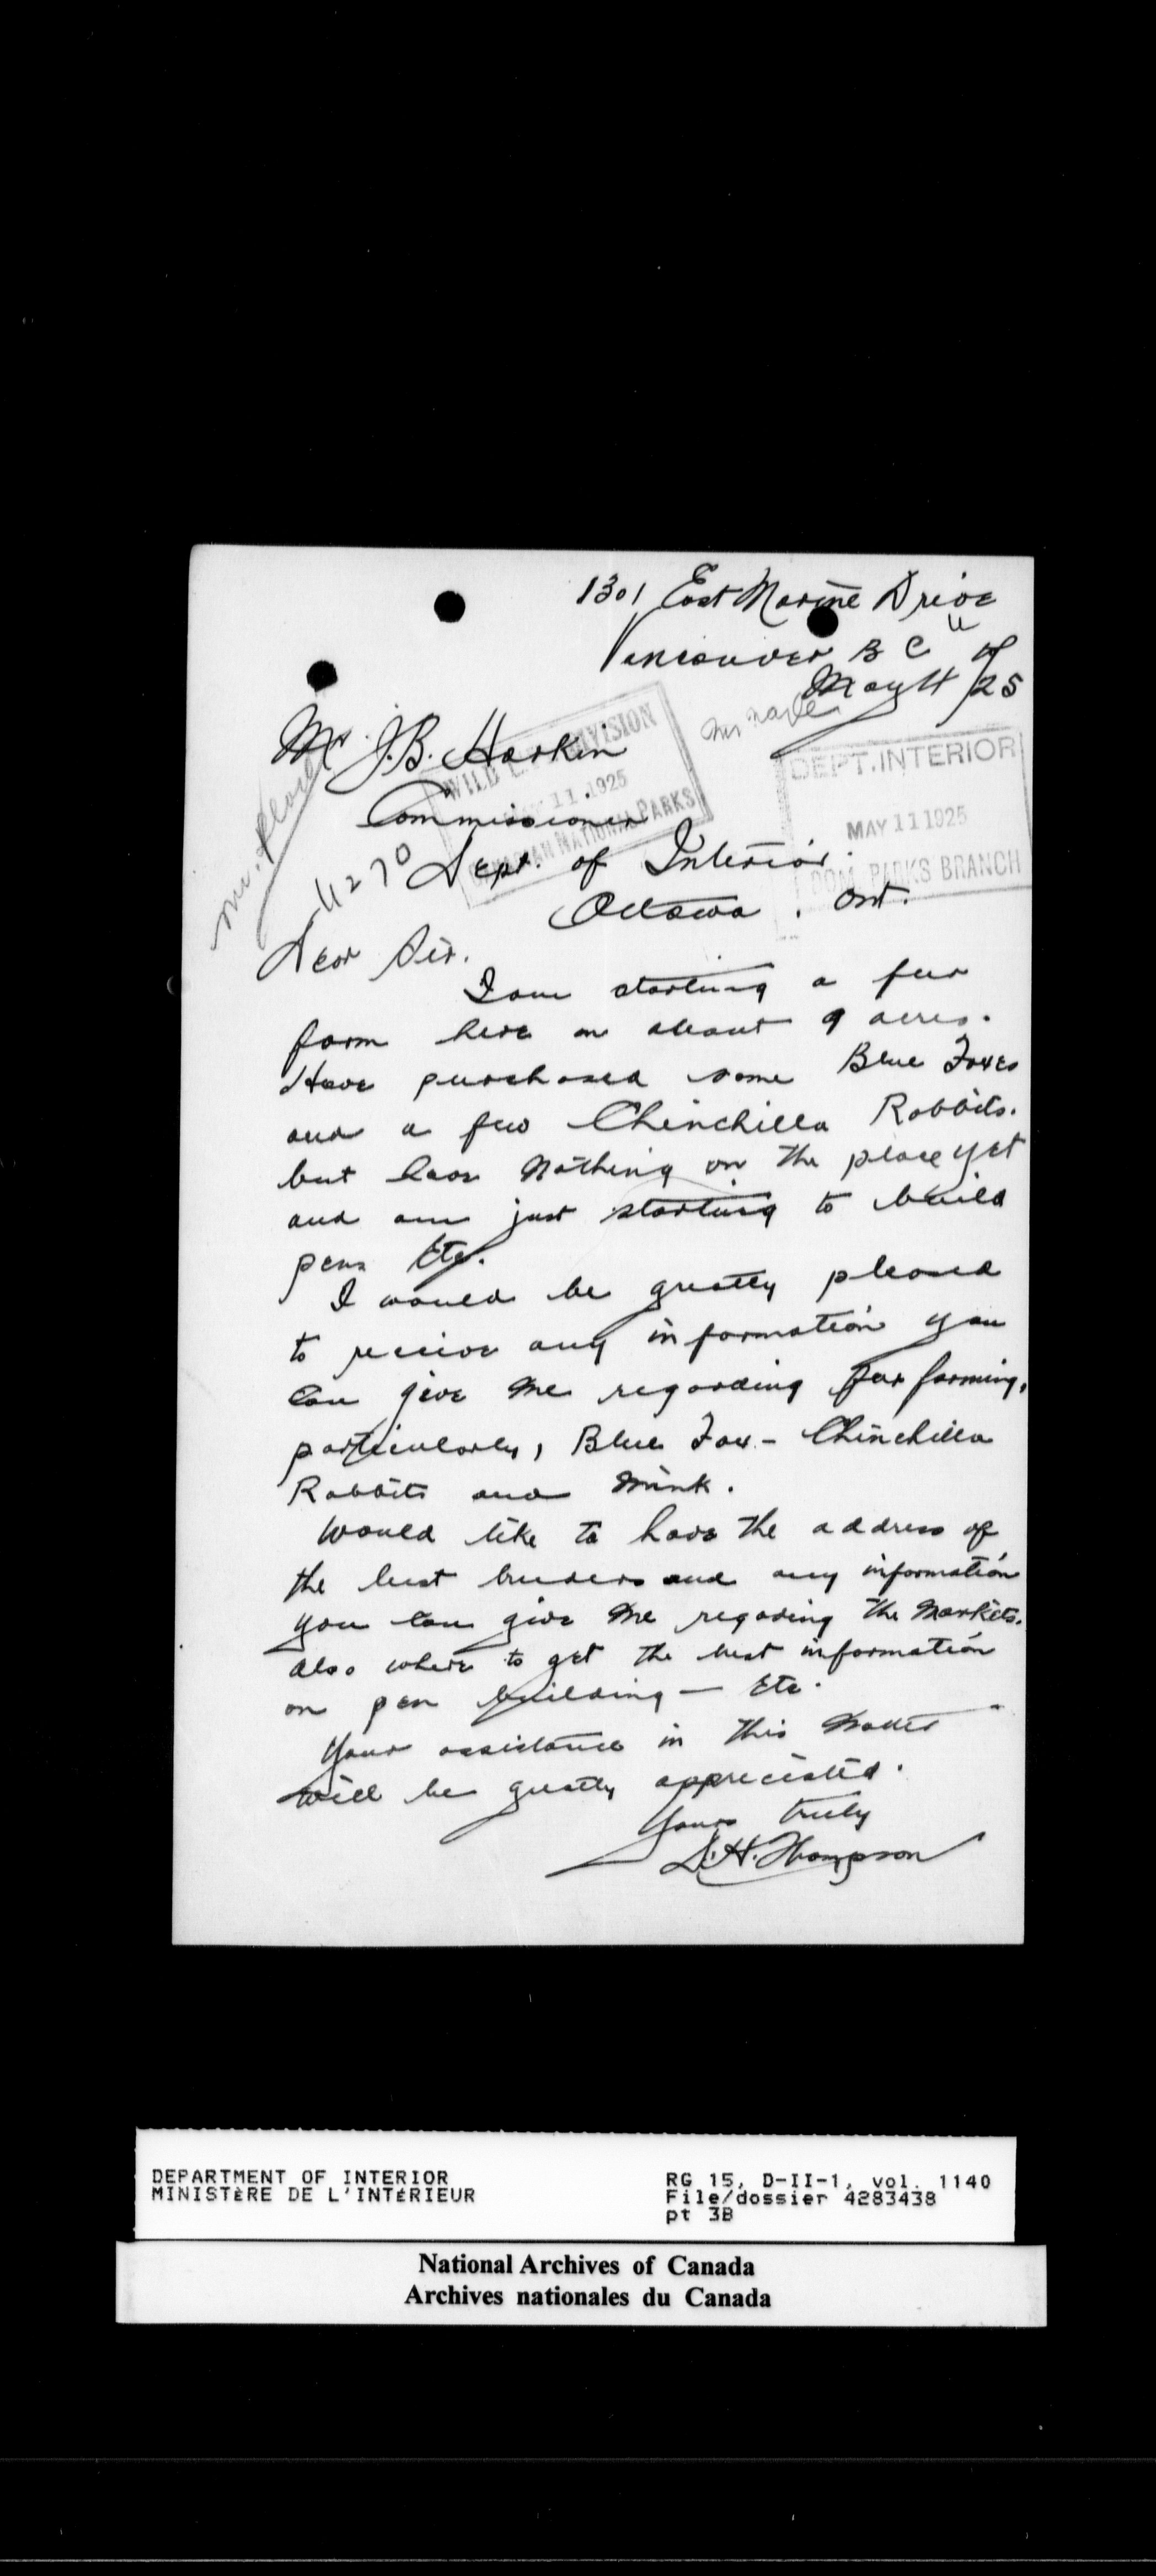 1301 East Marine Drive
Vancouver B C
May 4/25
Mr. J.B. Harkin
WILD LIFE DIVISION
MAY 11 1925
CANADIAN NATIONAL PARKS
DEPT. INTERIOR
MAY 11 1925
DOM. PARKS BRANCH
Commissioner
4270
Dept. of Interior.
Ottawa, Ont.
Dear Sir.
I am starting a fur
farm here on about 9 acres.
Have purchased some Blue Foxes
and a few Chinchilla Rabbits.
but have nothing on the place yet
and am just starting to build
pens Etc.
I would be greatly pleased
to receive any information you
can give me regarding fur farming,
particularly, Blue Fox - Chinchilla
Rabbits and Mink.
Would like to have the address of
the best breeders and any information
you can give me regarding the markets.
Also where to get the best information
on pen building — Etc.
Your assistance in this matter
will be greatly appreciated.
Yours truly
D.H. Thompson
DEPARTMENT OF INTERIOR
MINISTÈRE DE L'INTÉRIEUR
RG 15, D-II-1, vol. 1140
File/dossier 4283438
pt 3B
National Archives of Canada
Archives nationales du Canada